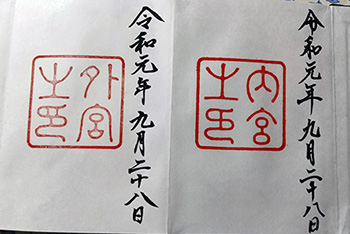 令和元年九月二十八日
内宮
之印
令和元年九月二十八日
外宮
之印